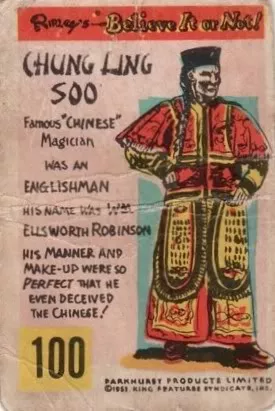 Ripley's— Believe It or Not!
CHUNG LING
SOO
FAMOUS "CHINESE"
MAGICIAN
WAS AN
ENGLISHMAN
HIS NAME WAS WM
ELLSWORTH ROBINSON
HIS MANNER AND
MAKE-UP WERE SO
PERFECT THAT HE
EVEN DECEIVED
THE CHINESE!
100
PARKHURST PRODUCTS LIMITED
KING FEATURES SYNDICATE, INC.